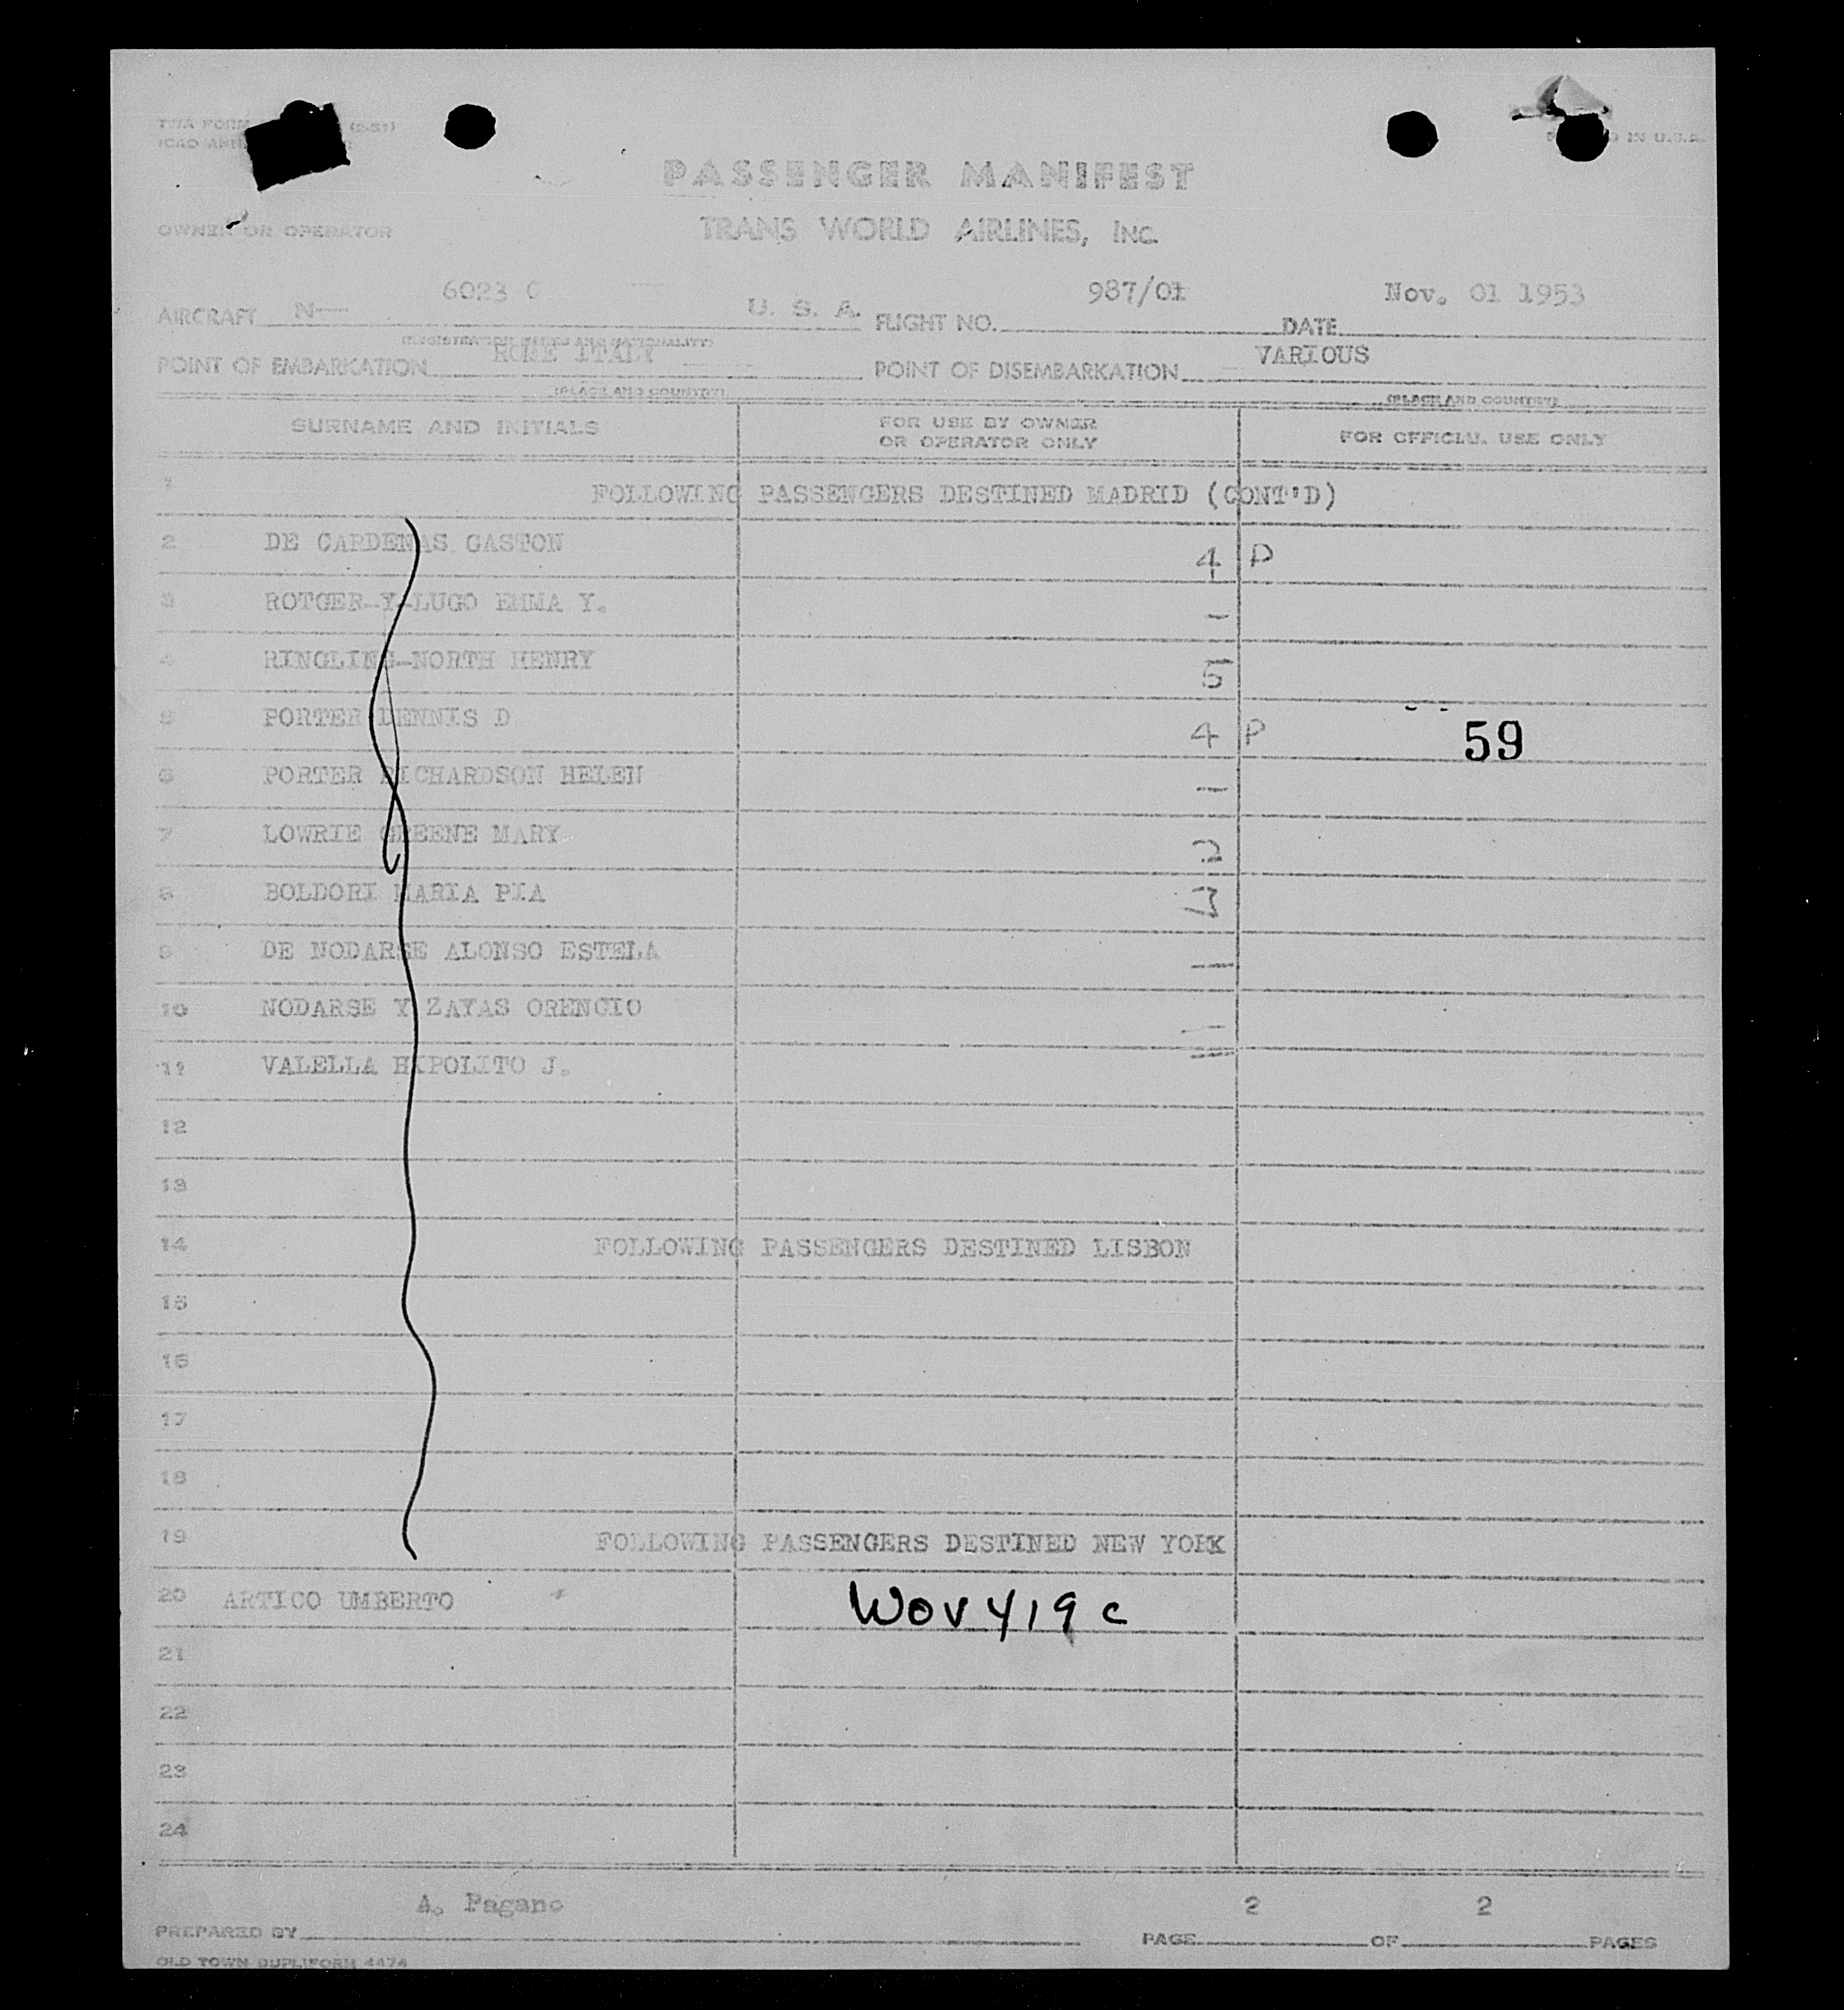 TWA FORM (5-51)
ICAO ANN
IN U.S.A.
PASSENGER MANIFEST
OWNER OR OPERATOR TRANS WORLD AIRLINES, INC.
AIRCRAFT N— 6023 C U. S. A. FLIGHT NO. 987/01 DATE Nov. 01 1953
(REGISTRATION MARKS AND NATIONALITY)
POINT OF EMBARKATION ROME ITALY POINT OF DISEMBARKATION VARIOUS
(PLACE AND COUNTRY) (PLACE AND COUNTRY)
SURNAME AND INITIALS FOR USE BY OWNER OR OPERATOR ONLY FOR OFFICIAL USE ONLY
1 FOLLOWING PASSENGERS DESTINED MADRID (CONT'D)
2 DE CARDENAS GASTON 4 P
3 ROTGER-Y-LUGO EMMA Y. -
4 RINGLING-NORTH HENRY 5
5 PORTER DENNIS D 4 P 59
6 PORTER RICHARDSON HELEN -
7 LOWRIE GREENE MARY 2
8 BOLDORI MARIA PIA 3
9 DE NODARSE ALONSO ESTELA -
10 NODARSE Y ZAYAS ORENCIO
11 VALELLA HIPOLITO J.
12
13
14 FOLLOWING PASSENGERS DESTINED LISBON
15
16
17
18
19 FOLLOWING PASSENGERS DESTINED NEW YORK
20 ARTICO UMBERTO WOV 419 C
21
22
23
24
PREPARED BY A. Pagano PAGE 2 OF 2 PAGES
OLD TOWN DUPLIFORM 4474